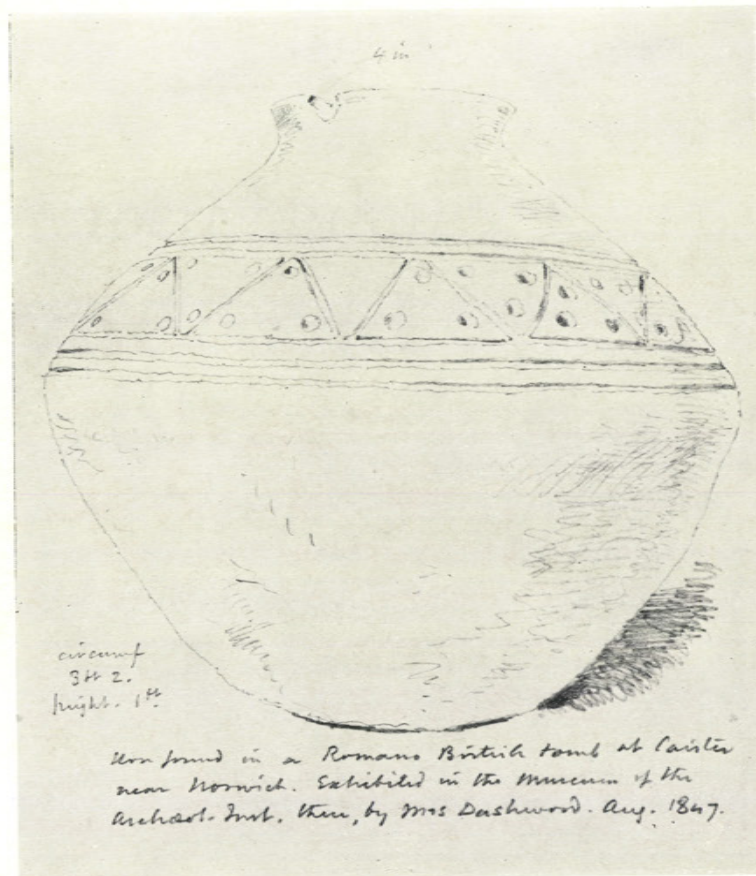 4 in
circumf
3ft 2.
height. 1ft
Urn found in a Romano British tomb at Caister
near Norwich. Exhibited in the Museum of the
Archæol. Inst. there, by Mrs Dashwood. Aug. 1847.